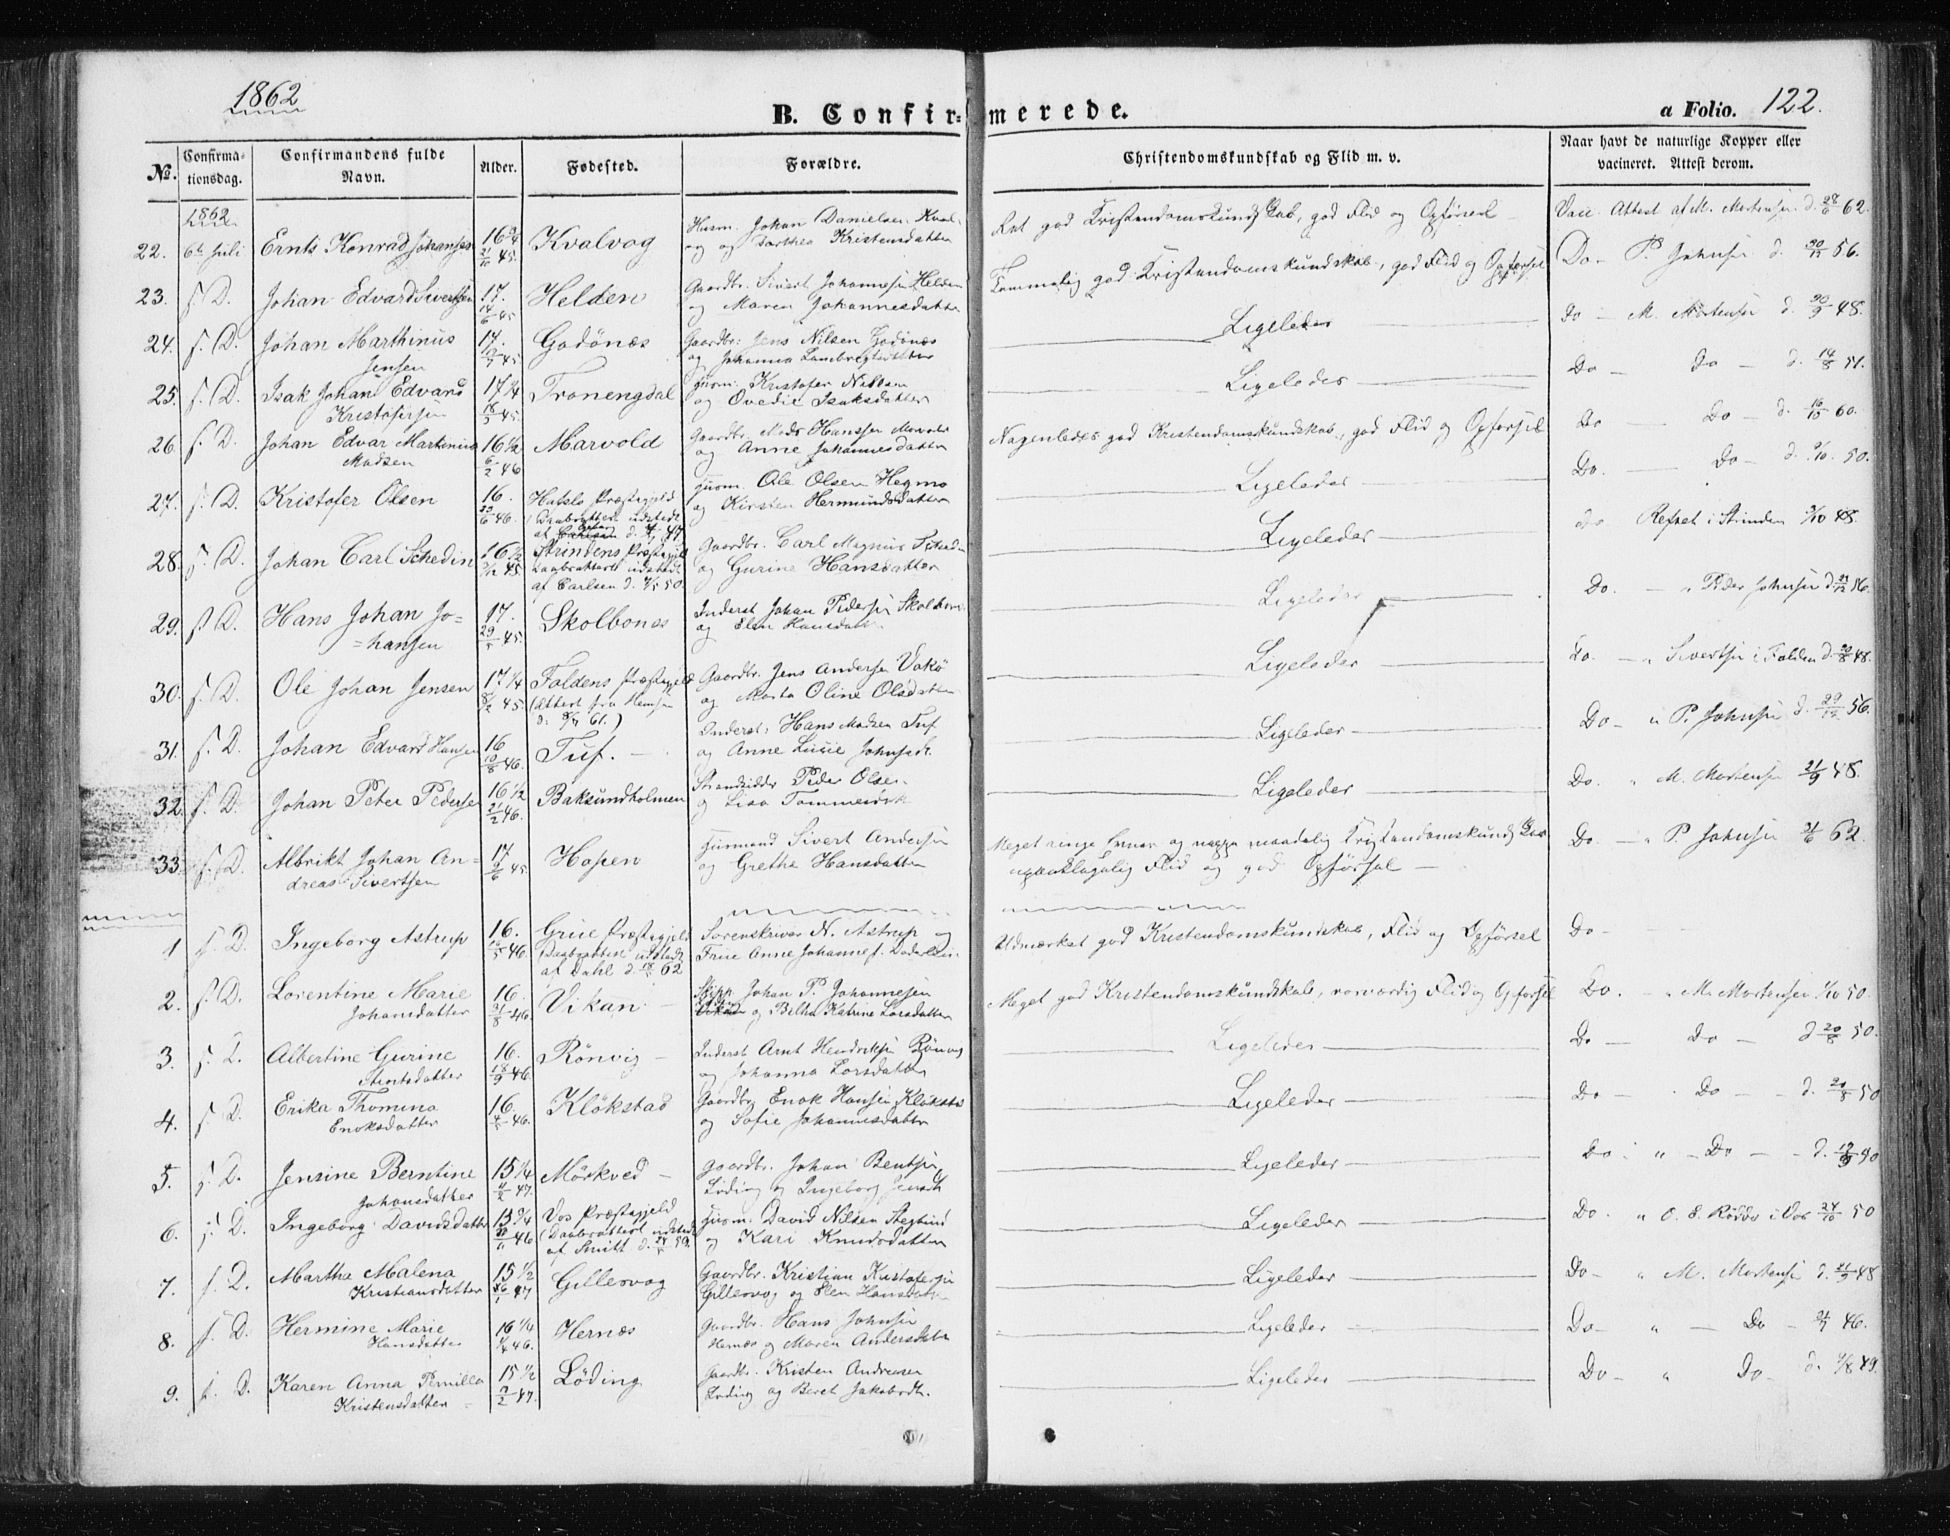 1862
B. Confir= merede.
a Folio. 122.
No.
Confirma-
tionsdag.
Confirmandens fulde
Navn.
Alder.
Fødested.
Forældre.
Christendomskundskab og Flid m. v.
Naar havt de naturlige Kopper eller
vacineret. Attest derom.
1862
22. 6te Juli Ernts Konrad Johansen 16 3/4 Kvalvog Husm. Johan Danielsen Kval-
og og Dorthea Kristensdatter
Ret god Kristendomskundskab, god Flid og Opførsel
Vacc. Attest af M. Mortensen d. 28/6 62.
23. s. D. Johan Edvard Sivertsen 17. 14/6 45 Helden Gaardbr. Sivert Johannesen Helden
og Maren Johannesdatter
Temmelig god Kristendomskundskab, god Flid og Opførsel
Do - P. Johnsen d. 30/12 56.
24. s. D. Johan Marthinus 17. Godönæs Gaardbr. Jens Nilsen Godönæs
Jensen og Johanna Lambregtsdatter
Ligeledes
Do - M. Mortensen d. 30/9 48.
25. s. D. Isak Johan Edvard 17 1/4 Tronengdal Husm. Kristofer Nilsen
Kristofersen 45. og Ovedie Isaksdatter
Ligeledes
Do - Do - d. 14/8 51.
26. s. D. Johan Edvar Martinius 16 1/2 Marvold Gaardbr. Mads Hanssen
Madsen 6/2 46 og Anne Johannesdatter
Nogenledes god Kristendomskundskab, god Flid og Opførsel
Do - Do - d. 16/10 60.
27. s. D. Kristofer Olsen 16. 46. Hatsls Præstegjeld Husm. Ole Olsen Hegmo
(Daabsattest udstedt og Kirsten Hermundsdatter
Ligeledes
Do. - Do - 50.
28. s. D. Johan Carl Schedin 16 1/2 45. Strindens Præstegjeld Gaardbr. Carl Magnus Schedin
Daabsattest udstedt og Gurine Hansdatter
af Carlsen d. 50
Ligeledes
Do Refset i Strinden 48.
29. s. D. Hans Johan Jo= 17. Skolbones Inderst Johan Pedersen
=hansen 29/5 45. og Elen Hansdatter
Ligeledes
Do. - " Peder Johnsen d. 56.
30. s. D. Ole Johan Jensen 17 1/4 Foldens Præstegjeld Gaardbr. Jens Andersen
45. (Attest fra og Marta Oline
61.)
Ligeledes
Do. - " Sivertsen i Folden d. 48.
31. s. D. Johan Edvard Hansen 16 10/8 46. Tuf. - Inderst: Hans Madsen Tuf
og Anne Lucie
Ligeledes
Do - " P. Johnsen d. 29/12 56.
32. s. D. Johan Peter Pedersen 16 1/2 21/2 46. Baksundholmen Strandsidder Peder Olsen
og Lisa
Ligeledes
Do. " M. Mortensen 21/9 48.
33. s. D. Albrikt Johan An= 17 45 Hopen Husmand Sivert Andersen
dreas Sivertsen og Grethe Hansdatter
Meget ringe Evner og neppe maadelig Kristendomskundskab
upaaklagelig Flid og god Opførsel -
Do. - " P. Johnsen 62.
1 s. D. Ingeborg Astrup 16. 46. Grue Præstegjeld Sorenskriver N. Astrup og
(Daabsattest udstedt Frue Anne Johanne f.
af Dahl d. 62
Udmærket god Kristendomskundskab, Flid og Opførsel
Do -
2. s. D. Lorentine Marie 16. 31/8 46 Vikan - Johan P. Johannesen
Johansdatter og Katrine Larsdatter
Meget god Kristendomskundskab, Flid og Opførsel
Do. - " M. Mortensen 50.
3. s. D. Albertine Gurine 16. 18/9 46 Rönvig - Inderst Arnt Hendriksen Rönvig
Arntsdatter og Johanna Larsdatter
Ligeledes
Do - Do - d 20/8 50.
4. s. D. Erika Thomina 16. 46. Klökstad Gaardbr. Enok Hansen
Enoksdatter og Sofie Johannesdatter
Ligeledes
Do - Do - d. 20/8 50
5. s. D. Jensine Berntine 15 1/4 47. Mörkved - Gaardbr. Johan Bentsen
Johansdatter Löding og Ingeborg
Ligeledes
Do - " - Do - d.
6. s. D. Ingeborg Davidsdatter 15 3/4 46 Vos Præstegjeld Husm. David Nilsen
(Daabsattest udstedt og Kari Knudsdatter
af Smitt d.
Ligeledes
Do. " O. E. i Vos 24/10 50
7. s. D. Martha Malena 15 1/2 47 Gillesvog Gaardbr. Kristian Kristofersen
Kristiansdatter Gillesvog og Elen Hansdatter
Ligeledes
Do - " M. Mortensen d. 21/9 48
8. s. D. Hermine Marie 16 1/4 46. Hernæs Gaardbr. Hans Johnsen
Hansdatter Hernæs og Maren Andersdatter
Ligeledes
Do - " - Do - 46.
9. s. D. Karen Anna Pernille 15 1/2 47. Löding Gaardbr. Kristen Andreasen
Kristensdatter Löding og Beret Jakobsdt.
Ligeledes
Do - " Do - d. 49.